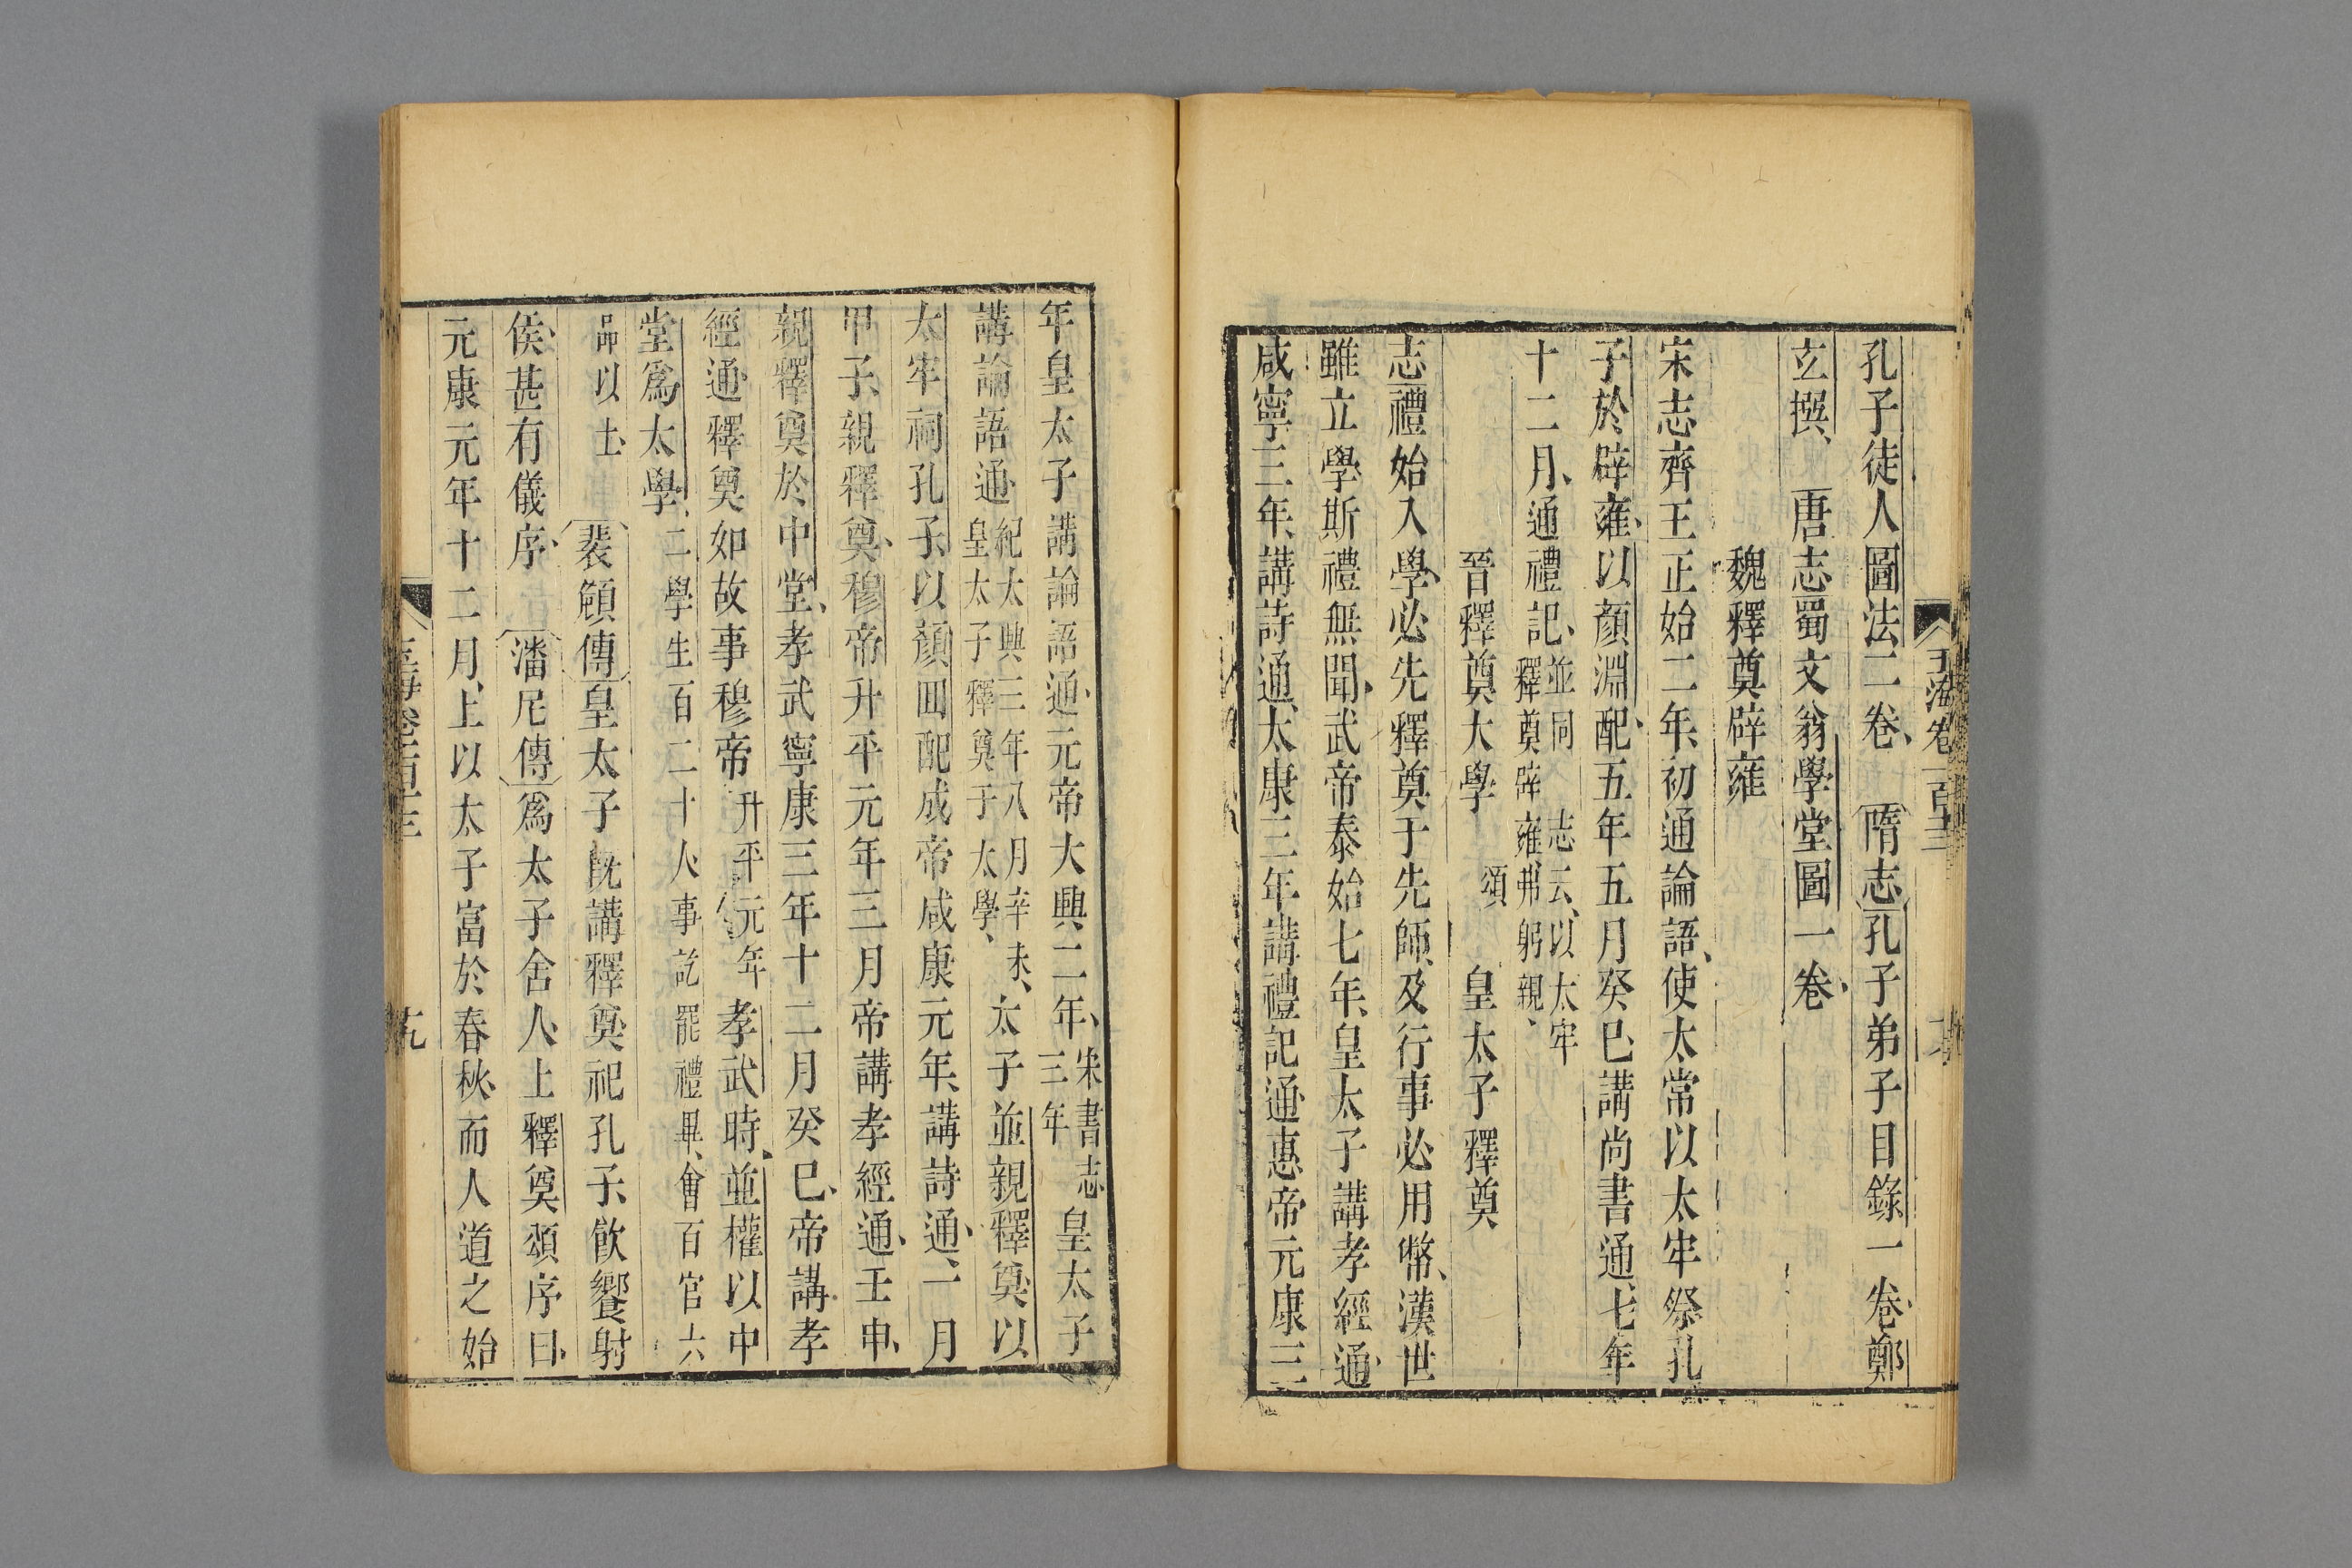 孔子徒人圖法二卷、隋志孔子弟子目錄一卷鄭
玄撰、唐志蜀文翁學堂圖一卷
魏釋奠辟雍
宋志齊王正始二年、初通論語、使太常以太牢祭孔
子於辟雍、以顏淵配、五年五月癸巳講尚書通、七年
十二月、通禮記、並同 志云、以太牢釋奠辟雍弗躬親、
晉釋奠大學頌 皇太子釋奠
志禮始入學必先釋奠于先師及行事必用幣、漢世
雖立學斯禮無聞、武帝泰始七年、皇太子講孝經通
咸寧三年、講詩通、太康三年講禮記通惠帝元康三
年皇太子講論語通元帝大興二年、宋書志三年皇太子
講論語通紀太興三年八月辛未、皇太子釋奠于太學、太子並親釋奠以
太牢祠孔子、以顏回配成帝咸康元年、講詩通、二月
甲子、親釋奠、穆帝升平元年三月帝講孝經通、壬申、
親釋奠於中堂、孝武寧康三年十二月癸巳、帝講孝
經通釋奠如故事穆帝升平元年孝武時、並權以中
堂爲太學、二學生百二十人、事訖罷禮畢、會百官六
品以上、裴頠傳皇太子既講釋奠祀孔子、飲饗射
侯、甚有儀序、潘尼傳爲太子舍人、上釋奠頌序曰、
元康元年十二月、上以太子富於春秋、而人道之始
玉海卷
九